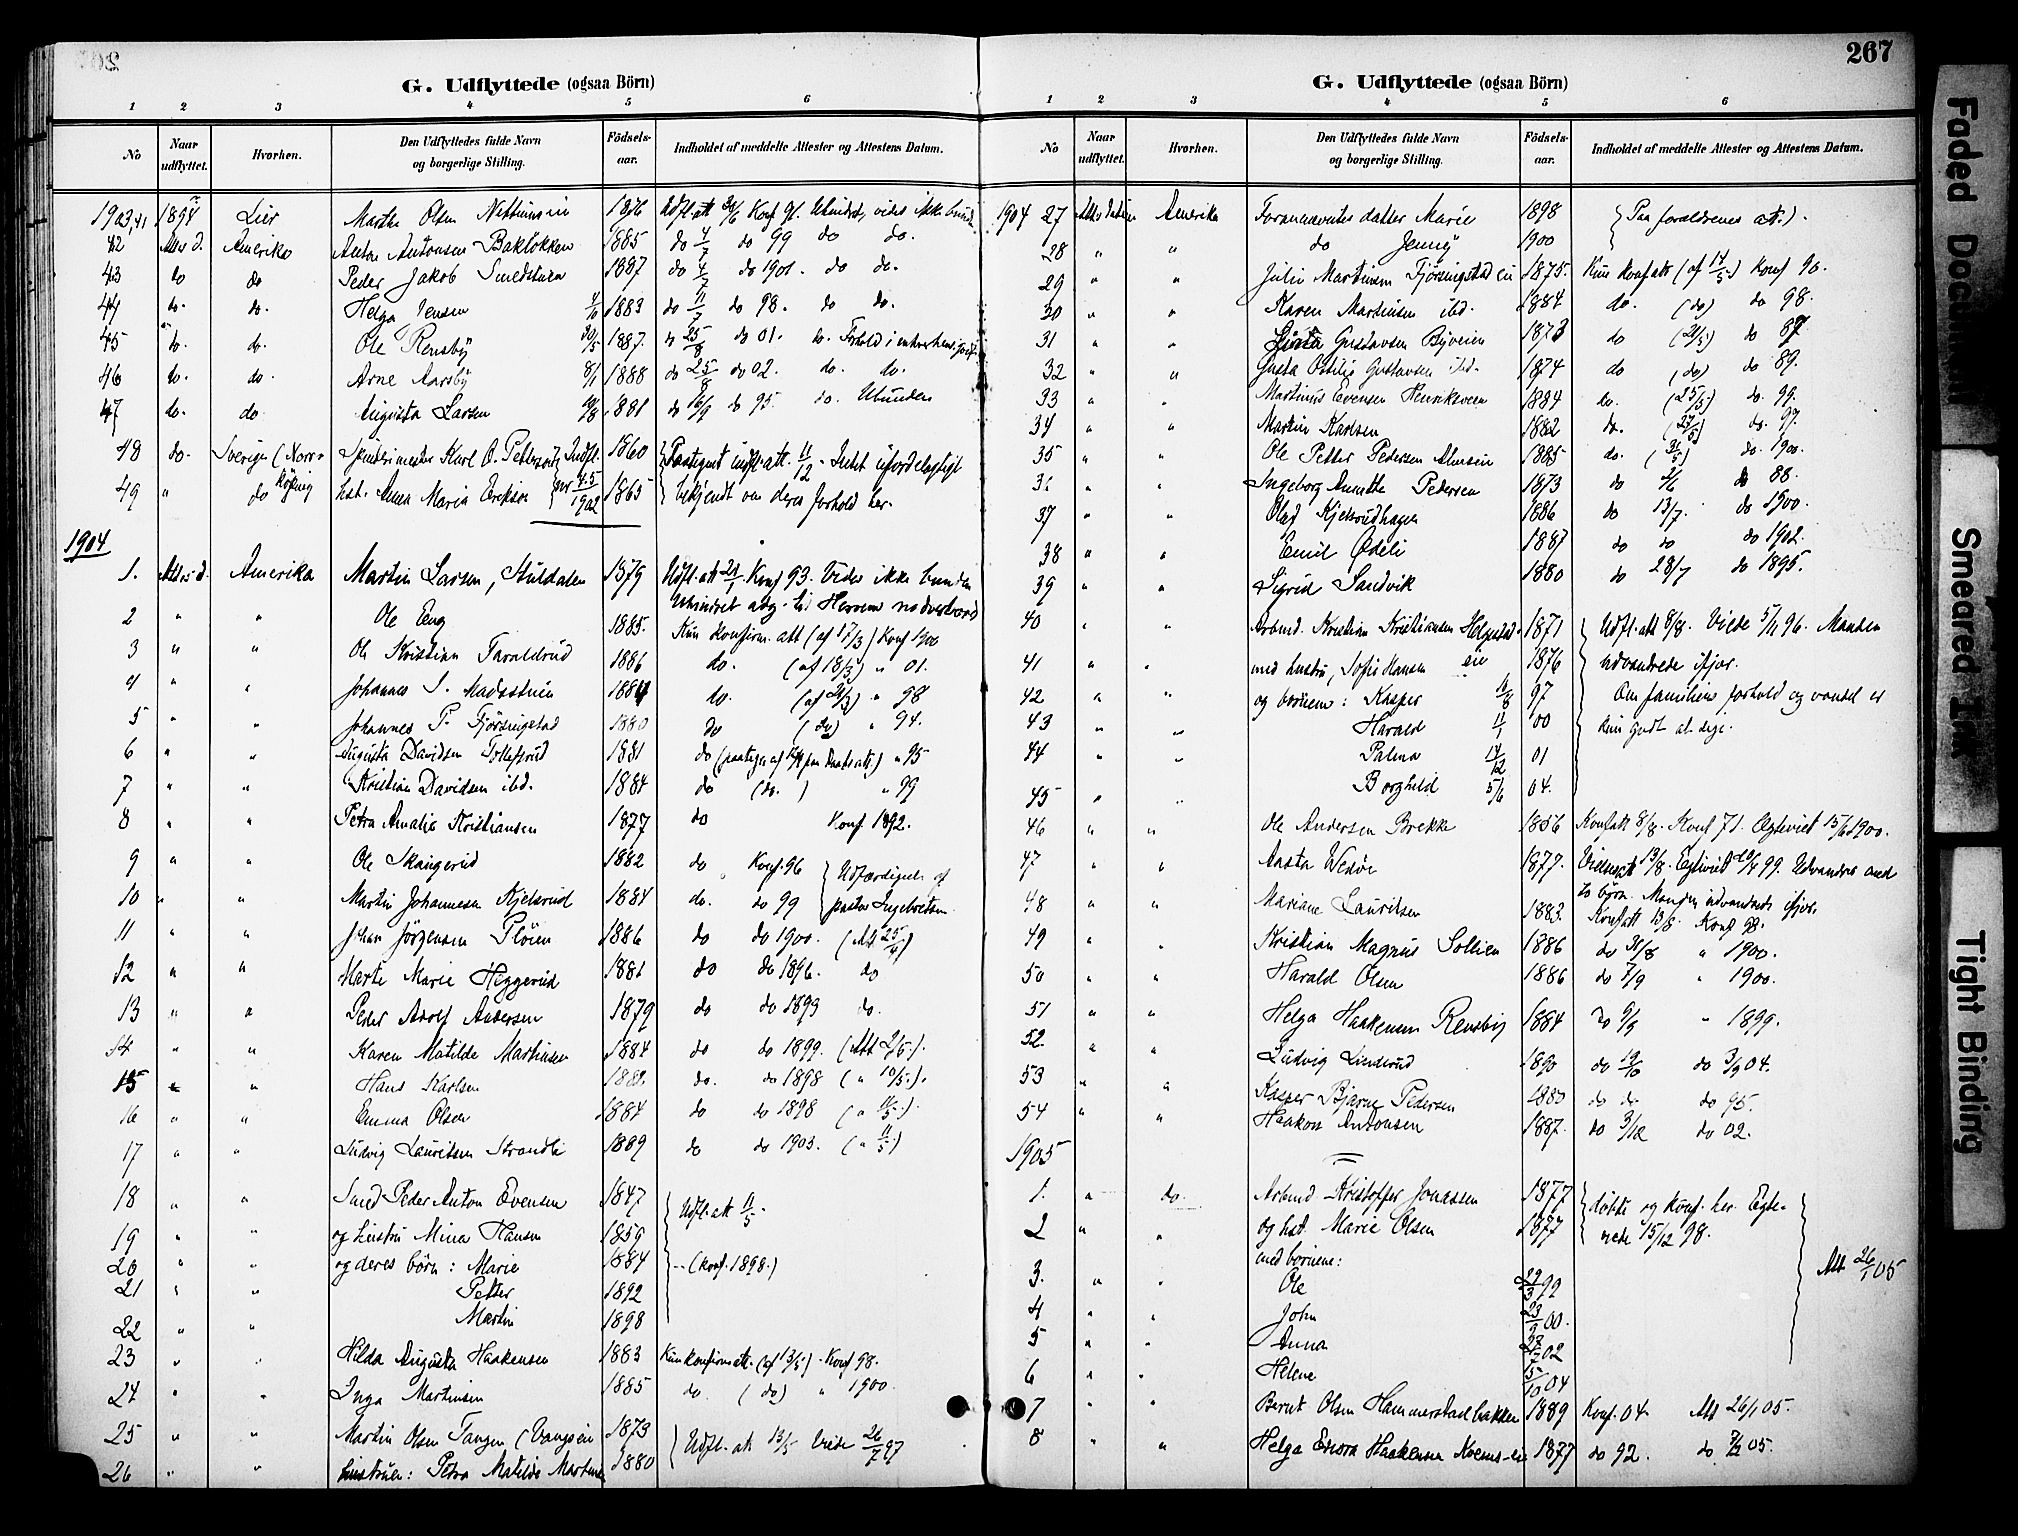 267
G. Udflyttede (ogsaa Börn)
1 2 3 4 5 6
No Naar udflyttet. Hvorhen. Den Udflyttedes fulde Navn og borgerlige Stilling. Födsels-aar. Indholdet af meddelte Attester og Attestens Datum.
1903, 41 Lier Marthe Olsen 1876
42 Att.s d. Amerika Anton Antonsen Bakløkken 1885 do 4/7 do 99 do do.
43 do do Peder Jakob Smedstuen 1887 do 4/7 do 1901. do do.
44 do. do. Helga Jensen 1883 do 11/7 do 98. do do.
45 do. do. Ole Rensby 1887. do 25/8 do 01. do. Forhold i
46 do. do. Arne Aarsby 8/1 1888 do 25/8 do 02. do. do.
47 do. do Augusta Larsen 1881 do 16/9 do 95 do. Ubunden
48 do. Sverige (Norr- Karl O. Petterson Indfl. 1860 Paategnet indfl. att. 11/12 - Intet ufordelagtigt
49 " do köping hst. Anna Maria Erikson 1902 1865 bekjendt om deres forhold her.
1904
1. Att.s d. Amerika Martin Larsen, Stuldalen 1879 Udfl. att 21/1 Konf 93. Vides ikke bunden
Uhindret adg. til Herrens nadverbord
2 " " Ole Eng 1885. Kun konfirm. att (af 17/3) Konf 1900
3 " " Ole Kristian Taraldrud 1886 do. (af 18/3) " 01.
4 " " Johannes 188 do. (af 21/3) " 98
5 " " Johannes P. Fjørsingstad 1880 do (do) " 94.
6 " " Augusta Davidsen Tollefsrud 1881 do " 95
7 " " Kristian Davidsen ibd. 1884 do (do.) " 99
8 " " Petra Amalie Kristiansen 1877 do Konf. 1892.
9 " " Ole Skaugerud 1882 do Konf. 96 Udfærdiget af
10 " " Martin Johannesen Kjelsrud 1884 do. do 99 pastor Ingebretsen
11 " " Johan Jörgensen Pløien 1886 do do 1900. (Att 25/4)
12 " " Marte Marie Heggerud 1881 do do 1896. do
13 " " Peder Adolf Andersen 1879 do do 1893 do.
14 " " Karen Matilde Martinsen 1884 do do 1899. (Att 2/5.).
15 " " Hans Karlsen 188 do. do 1898 (" 10/5.).
16 " " Emma Olsen 1884 do do 1898 (" 11/5.)
17 " " Ludvig Lauritsen Strandli 1889 do do 1903. (" 11/5)
18 " " Smed Peder Anton Evensen 1847 Udfl. att 11/5.
19 " " og hustru Mina Hansen 1859
20 " " og deres börn: Marie 1884 (Konf. 1898.)
21 " " Petter 1892
22 " " Martin 1898
23 " " Hilda Augusta Haakensen 1883 Kun konfirm.att. (af 13/5) - Konf 98.
24 " " Inga Martinsen 1885 do. (do) " 1900.
25 " " Martin Olsen Tangen 1873 Udfl. att 13/5 Viede 26/7 97
26 " " hustruen: Petra Matilde 1880
G. Udflyttede (ogsaa Börn)
1 2 3 4 5 6
No Naar udflyttet. Hvorhen. Den Udflyttedes fulde Navn og borgerlige Stilling. Födsels-aar. Indholdet af meddelte Attester og Attestens Datum.
1904 27 Att.s datum Amerika Forannævntes datter Marie 1898 (Paa forældrenes att.).
28 " " do Jenny 1900
29 " " Julie Martinsen Fjørsingstad 1875. Kun konf att (af 14/5) Konf 90.
30 " " Karen Martinsen ibd. 1884 do. (do) do 98.
31 " " Gustavsen Byveien 1873 do (21/5) do 87
32 " " Gusta Ottilie Gustavsen ibd. 1874 do (do) do 89.
33 " " Martinus Evensen 1884 do. (25/5.) do. 99.
34 " " Martin Karlsen 1882 do. (27/5) do. 97.
35 " " Ole Petter Pedersen 1885 do. do. 1900.
36 " " Ingeborg Annette Pedersen 1873 do do 88.
37 " " Olaf Kjelsrudhagen 1886 do 13/7. do 1900.
38 " " Emil Ødeli 1887 do do do 1902.
39 " " Sigrid Sandvik 1880 do 28/7 do 1895.
40 " " Arbmd. Kristian Kristiansen Helgestad- 1871 Udfl. att 8/8. Viede 96. Manden
41 " " med hustru, Sofie Hansen eie 1876 udvandrede ifjor.
42 " " og börnene: Kasper 11/8 97 Om familiens forhold og vandel er
43 " " Harald 11/1 00 kun godt at sige.
44 " " Palma 14/12 01
45 " " Borghild 5/6 04.
46 " " Ole Andersen Brekke 1856 Konfatt 8/8. Konf 71. Egteviet 1900.
47 " " Aasta 1877. Egteviet 99. Udvandrer med
to börn. Manden udvandrede ifjor.
48 " " Mariane Lauritsen 1883. Konfatt 13/8. Konf 98.
49 " " Kristian Magnus Sollien 1886 do " 1900.
50 " " Harald Olsen 1886 do 7/9 " 1900.
51 " " Helga Haakensen Rensby 1884 do 9/9 " 1899.
52. " " Ludvig Linderud 1890 do 19/10 do 3/9 04.
53 " " Kasper Bjarne Pedersen 1880 do do do 95.
54 " " Haakon Antonsen 1887. do 3/12 do 02.
1905
1. " do. Arbmd Kristoffer Jonassen 1877 döbte og Konf. her. Egte-
2 " " og hst. Marie Olsen 1877 viede 15/12 98.
med börnene:
3. " " Ole 29/3 99 Att 26/1 05
4 " " John 23/9 00.
5 " " Anna 02
6 " " Helene 15/10 04
7 " " Bernt Olsen Hammerstadbakken 1889 Konf. 04. Att 26/1 05.
8 " " Helga Haakensen 1877 do 92. do 05.
Faded Document
Smeared Ink
Tight Binding